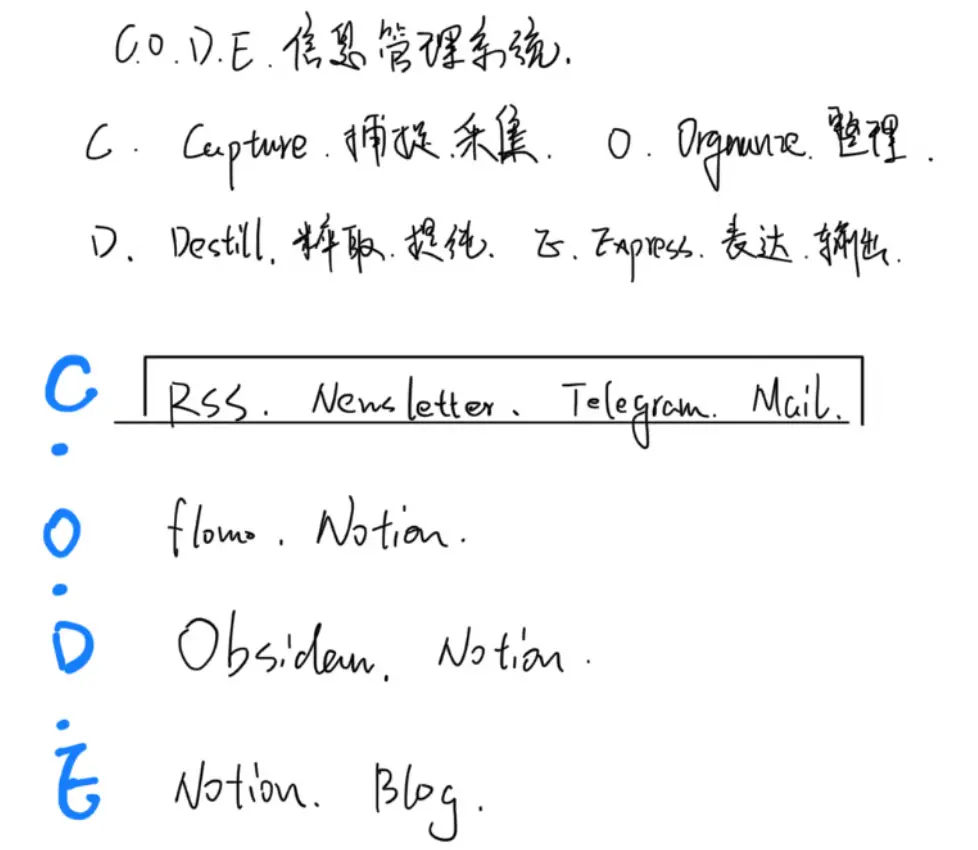 C.O.D.E.信息管理系统.
C. Capture.捕捉.采集. O. Orgnanize.整理.
D. Destill.粹取.提纯. E. Express.表达.输出.
C RSS. Newsletter. Telegram. Mail.
·
O flomo. Notion.
·
D Obsidan. Notion.
·
E Notion. Blog.